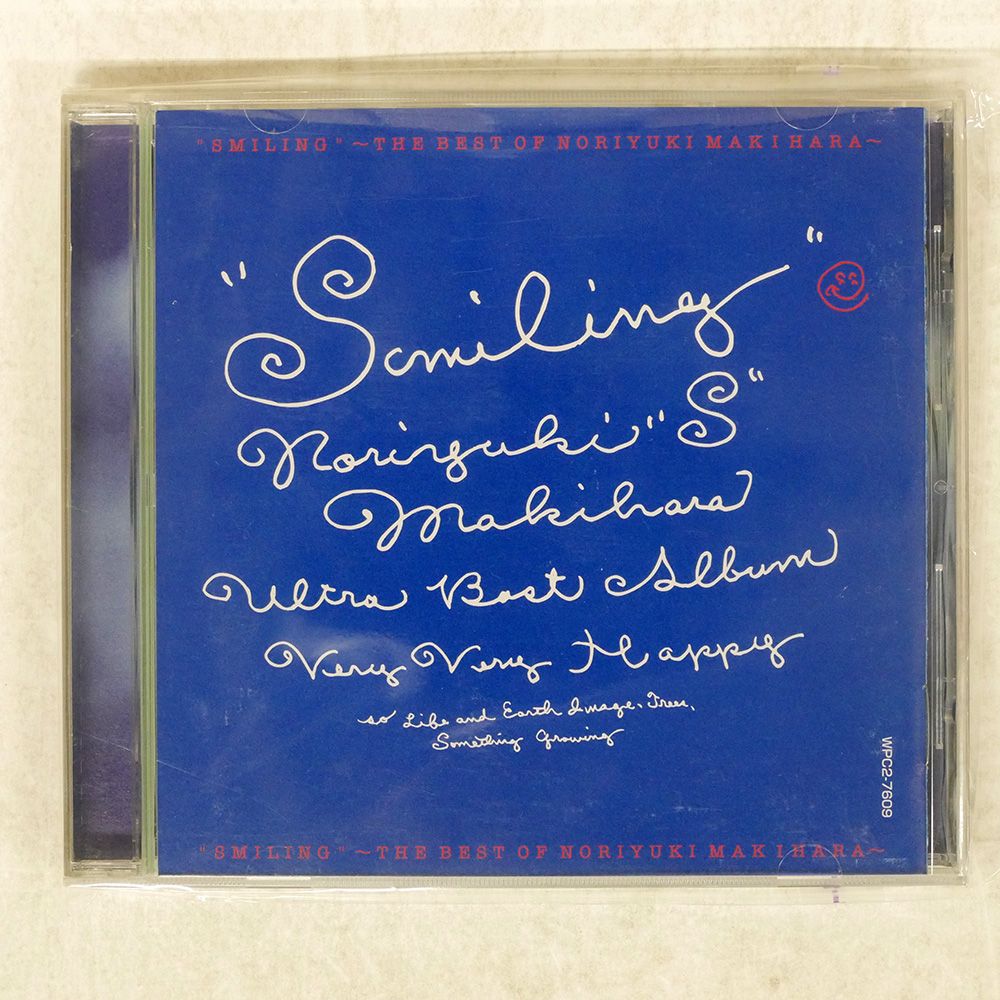 "SMILING"~THE BEST OF NORIYUKI MAKIHARA~
"Smiling"
Noriyuki "S"
Makihara
Ultra Best Album
Very Very Happy
so Life and Earth Image, Trees,
Something Growing
WPC2-7609
"SMILING"~THE BEST OF NORIYUKI MAKIHARA~